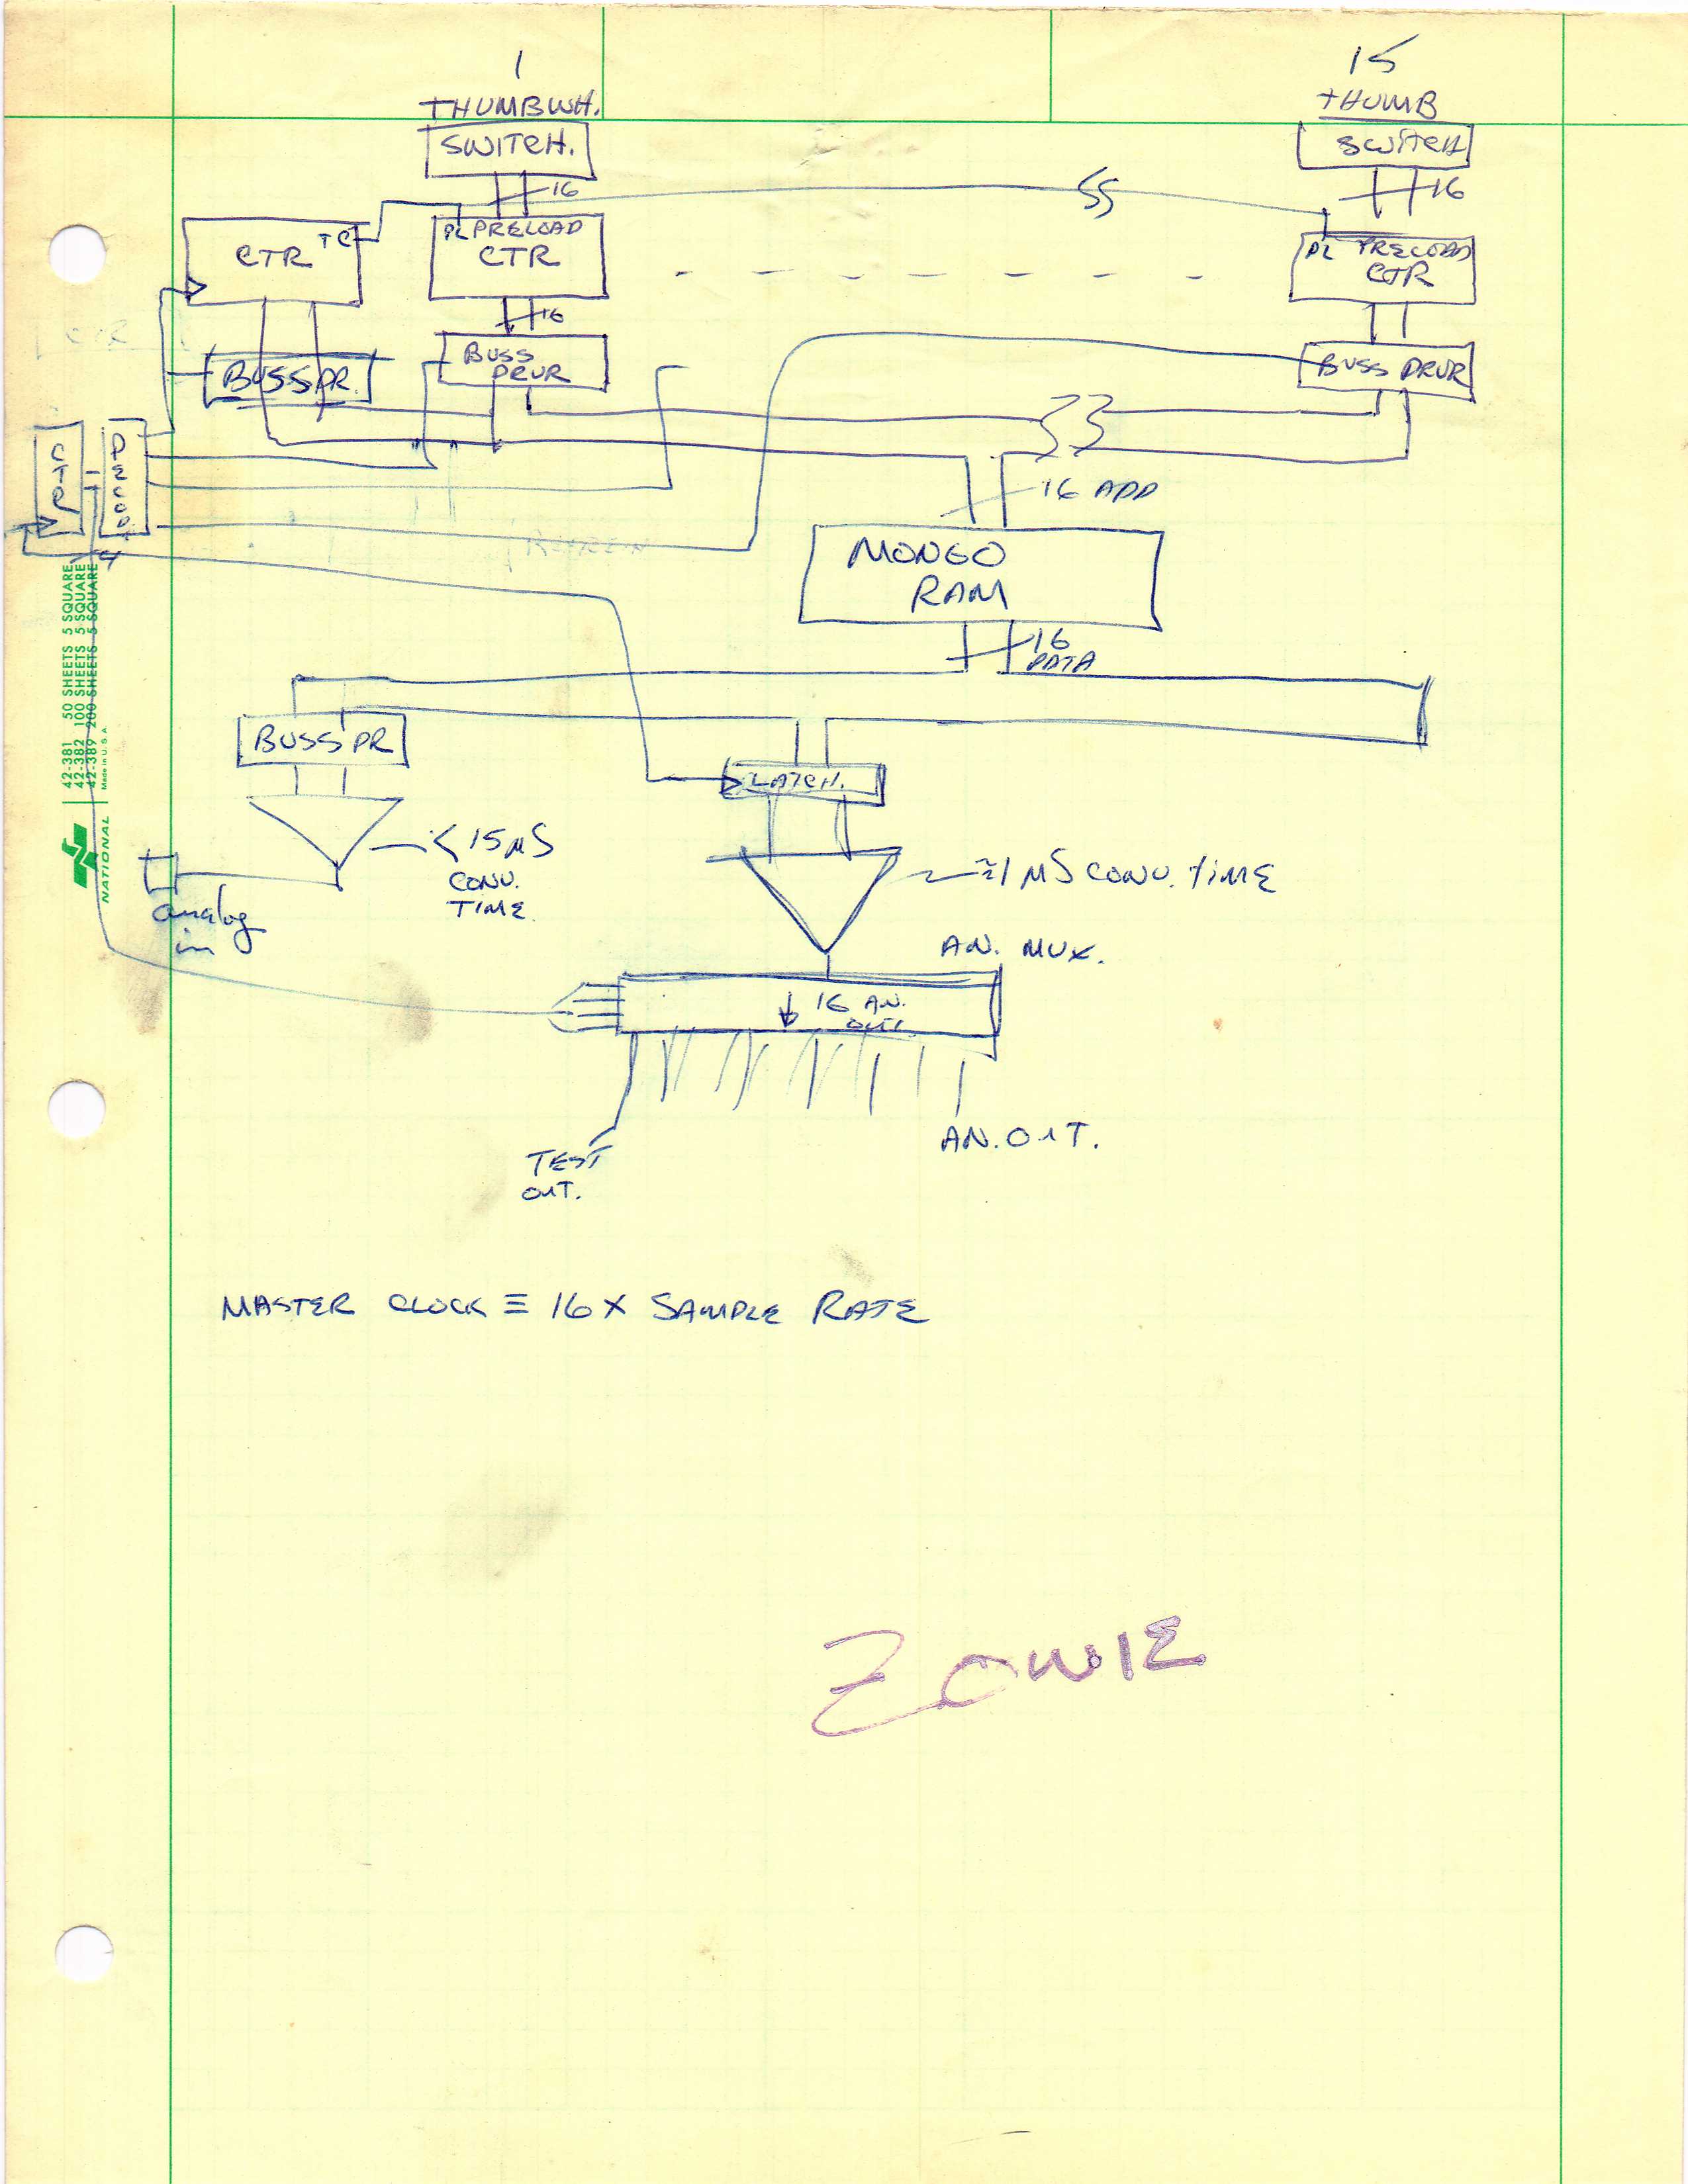 1
THUMBWH.
SWITCH.
16
15
THUMB
SWITCH
16
CTR TC
PL PRELOAD
CTR
16
PL PRELOAD
CTR
BUSS PR.
BUSS
DRVR
BUSS DRVR
CTR
DECOD
4
16 ADD
MONGO
RAM
16
DATA
BUSS PR
LATCH.
< 15 µS
CONV.
TIME.
≈1 µS CONV. TIME
analog
in
AN. MUX.
16 AN.
OUT.
TEST
OUT.
AN. OUT.
MASTER CLOCK ≡ 16 X SAMPLE RATE
ZOWIE
42-381 50 SHEETS 5 SQUARE
42-382 100 SHEETS 5 SQUARE
42-389 200 SHEETS 5 SQUARE
NATIONAL
Made in U.S.A.